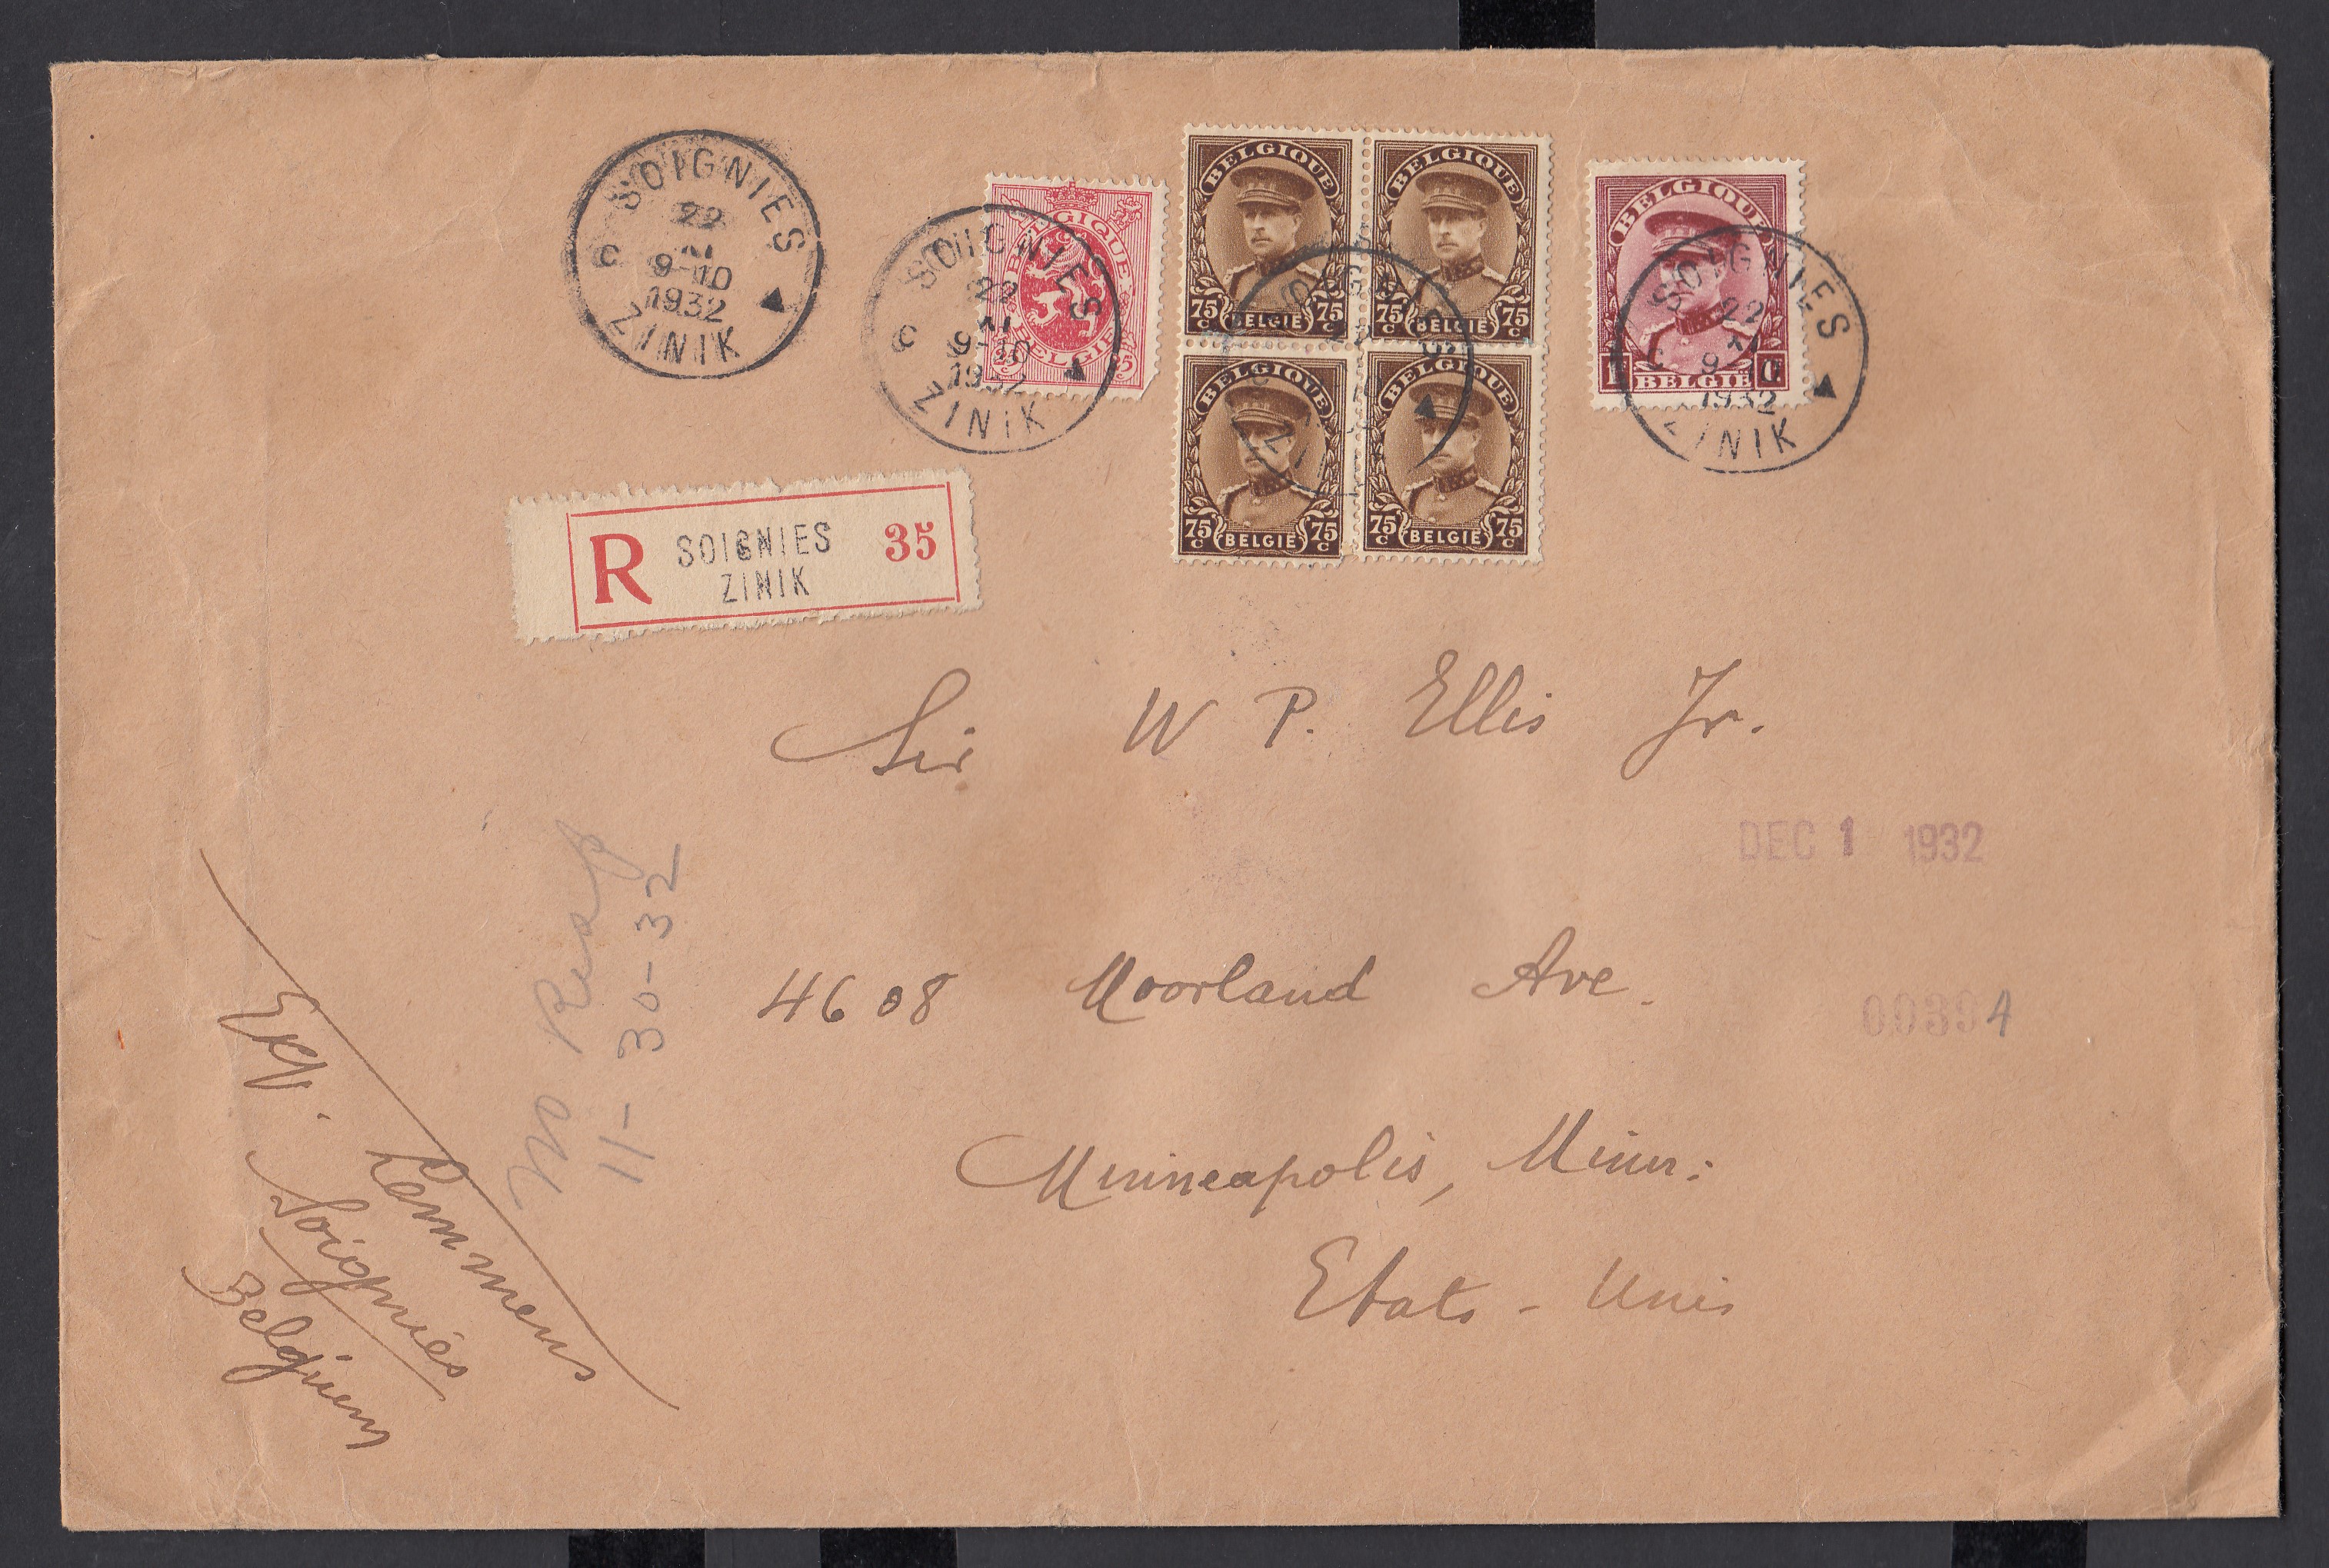 SOIGNIES
22
XI
9-10
1932
C
ZINIK
SOIGNIES
22
XI
9-10
1932
C
ZINIK
BELGIQUE
BELGIË
BELGIQUE
75 C 75 C
BELGIË
BELGIQUE
75 C 75 C
BELGIË
BELGIQUE
75 C 75 C
BELGIË
BELGIQUE
75 C 75 C
BELGIË
BELGIQUE
BELGIË
SOIGNIES
22
XI
1932
C
ZINIK
R SOIGNIES 35
ZINIK
Sir W P. Ellis Jr.
DEC 1 1932
4608 Moorland Ave.
Minneapolis, Minn:
Etats - Unis
No
11-30-32
Exp. Lemmens
Soignies
Belgium